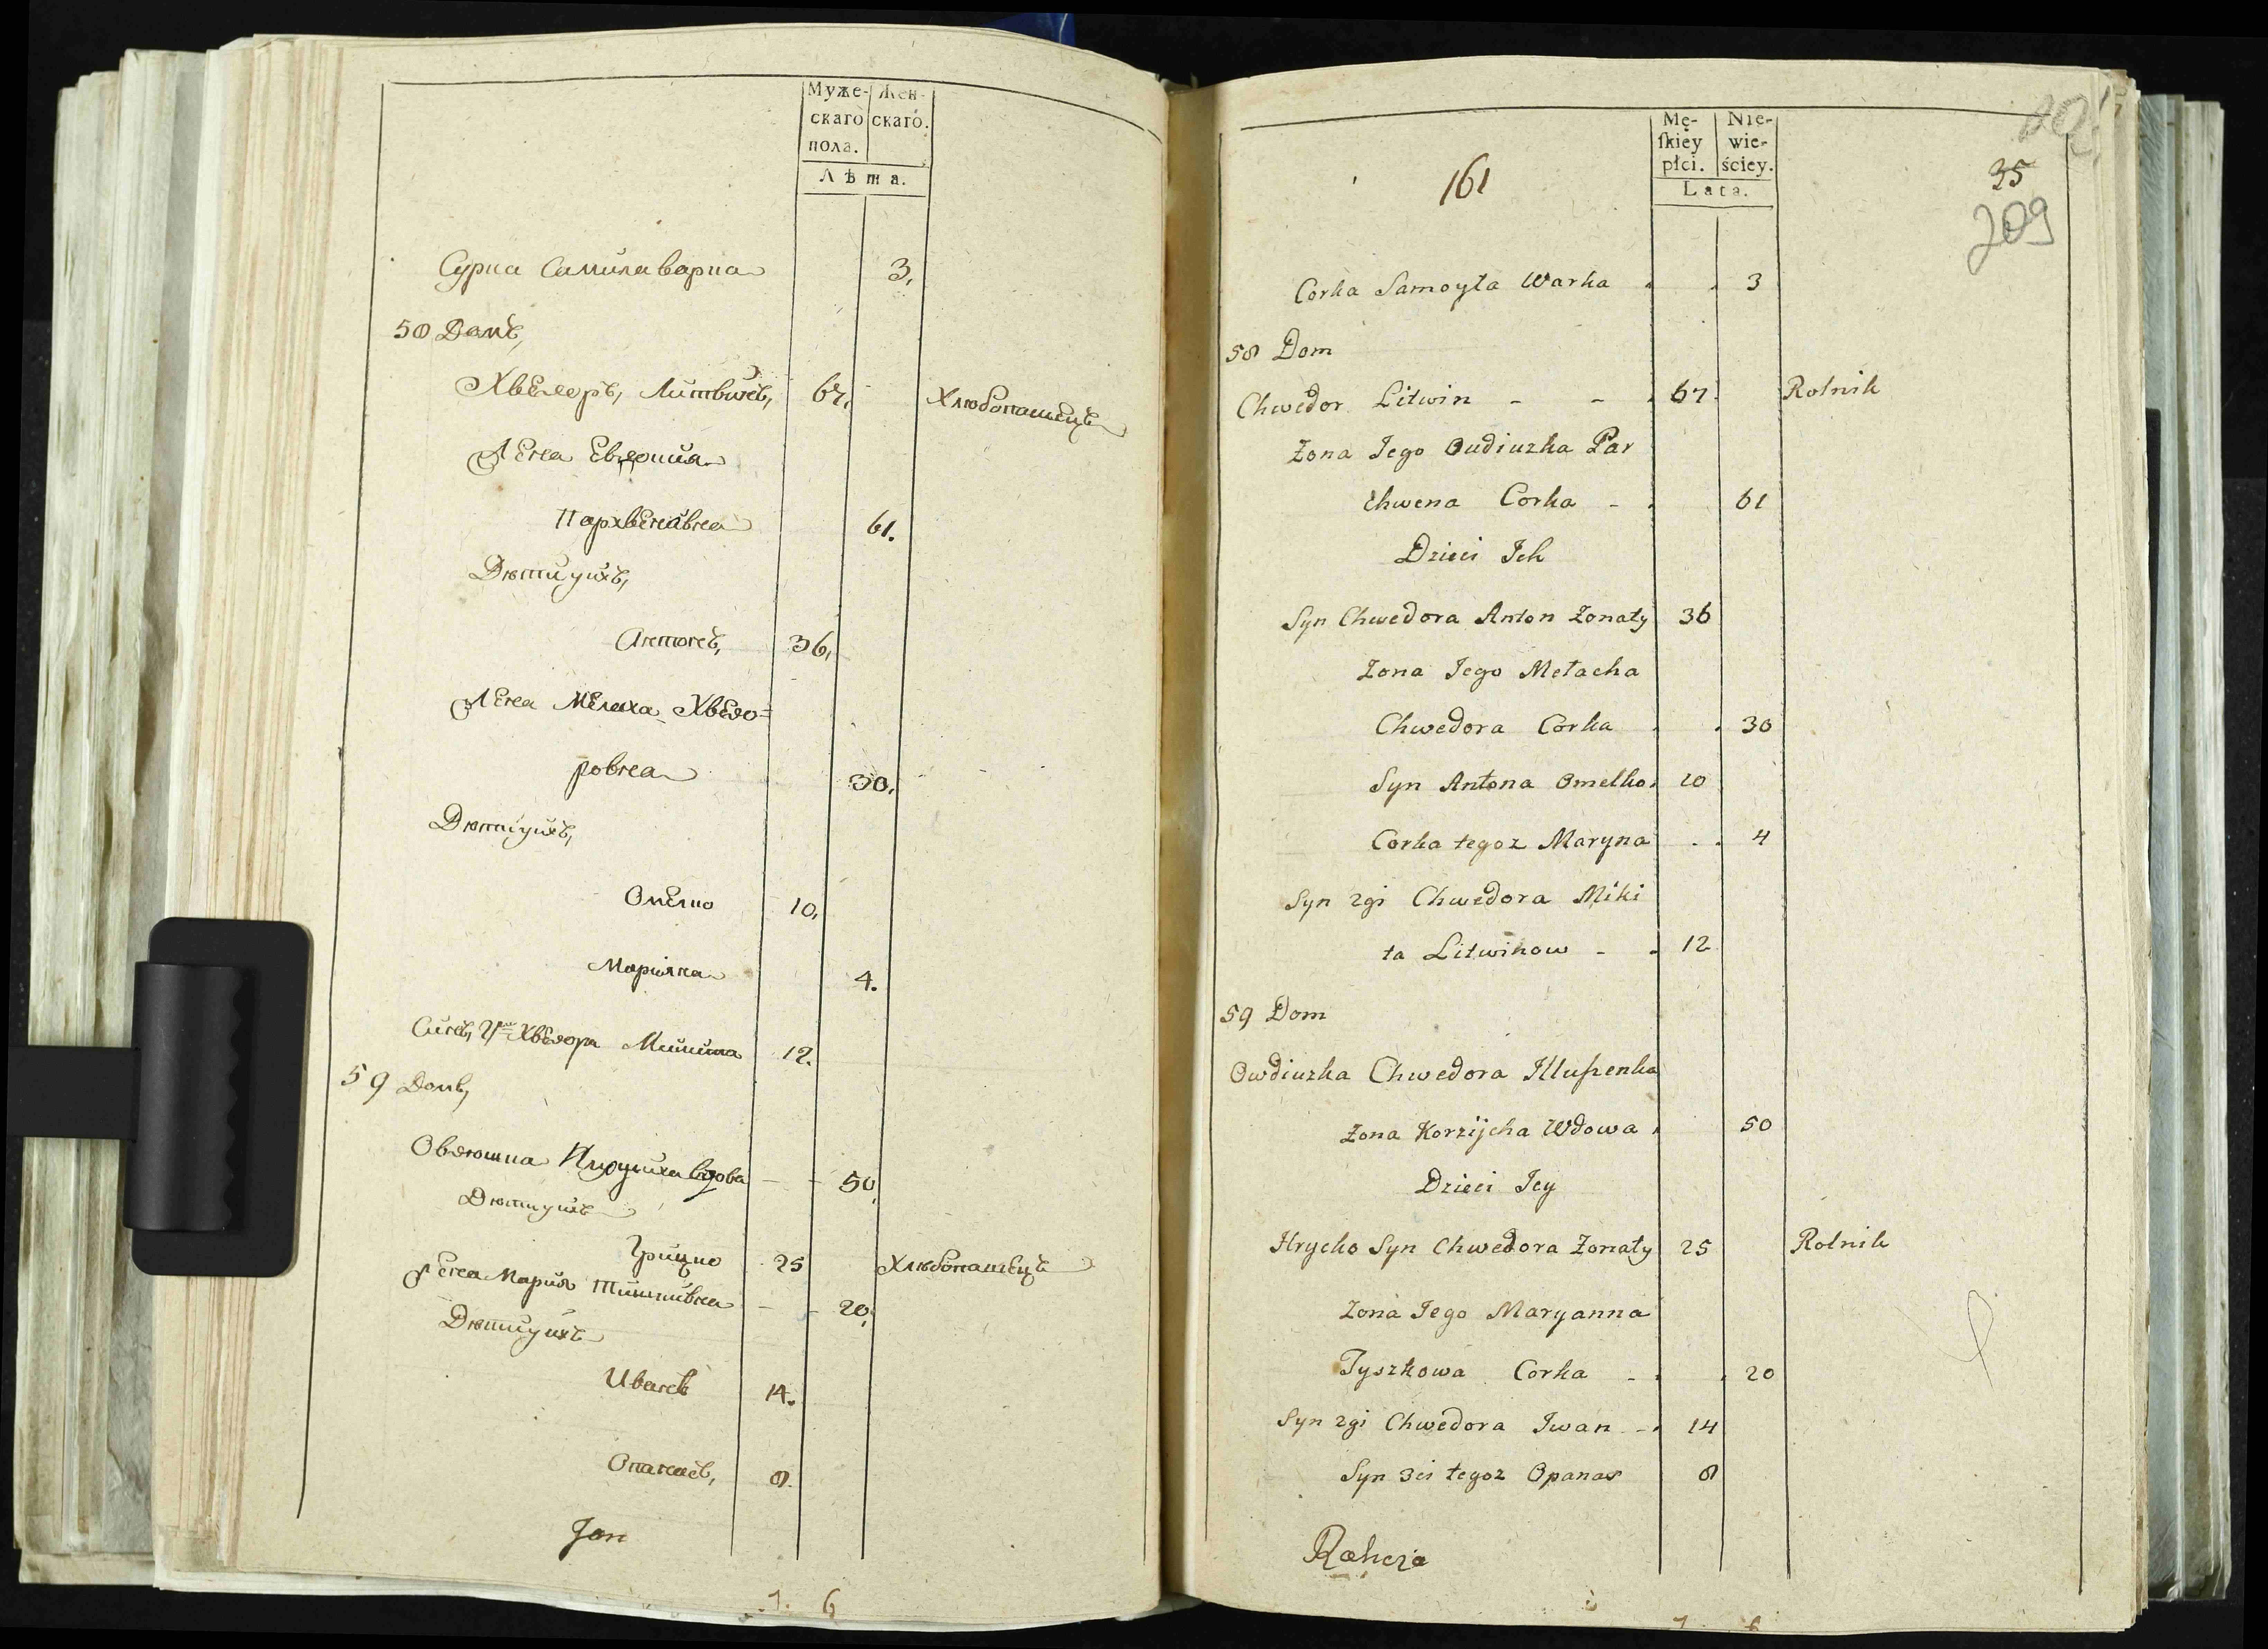 Муже- Жен-
скаго скаго.
пола.
Лѣта.
Сурка Самила варка 3,
58 Домъ,
Хведоръ, Литвинъ, 67, Хлюбопашецъ
Жена Евдокия
Пархвенивна 61.
Дюти ухъ,
Антонъ, 36,
Жена Мелаха Хведо=
ровна 30,
Дюти ухъ,
Омелко 10,
Марияна 4.
Синъ, 2й Хведора Микита 12.
59 Домъ,
вдова 50,
Дюти ухъ
Грицко 25 Хлюбопашецъ
Жена Мария Тишкивна 20,
Дюти ухъ
Иванъ 14.
Опанасъ, 8.
Jan
7. 6
161
Mę- Nie-
ſkiey wie-
płci. ściey.
Lata.
35
209
Corka Samoyła Warka 3
58 Dom
Chwedor Litwin - - 67 Rolnik
Zona Jego Oudiuzka Par
chwena Corka - 61
Dzieci Ich
Syn Chwedora Anton Zonaty 36
Zona Jego Metacha
Chwedora Corka 30
Syn Antona Omelko. 10
Corka tegoz Maryna 4
Syn 2gi Chwedora Miki
ta Litwinow - 12
59 Dom
Owdiuzka Chwedora
Zona Korzijcha Wdowa 50
Dzieci Jey
Hrycko Syn Chwedora Zonaty 25 Rolnik
Zona Jego Maryanna
Tyszkowa Corka - 20
Syn 2gi Chwedora Iwan - 14
Syn 3ci tegoz Opanas 8
7 6